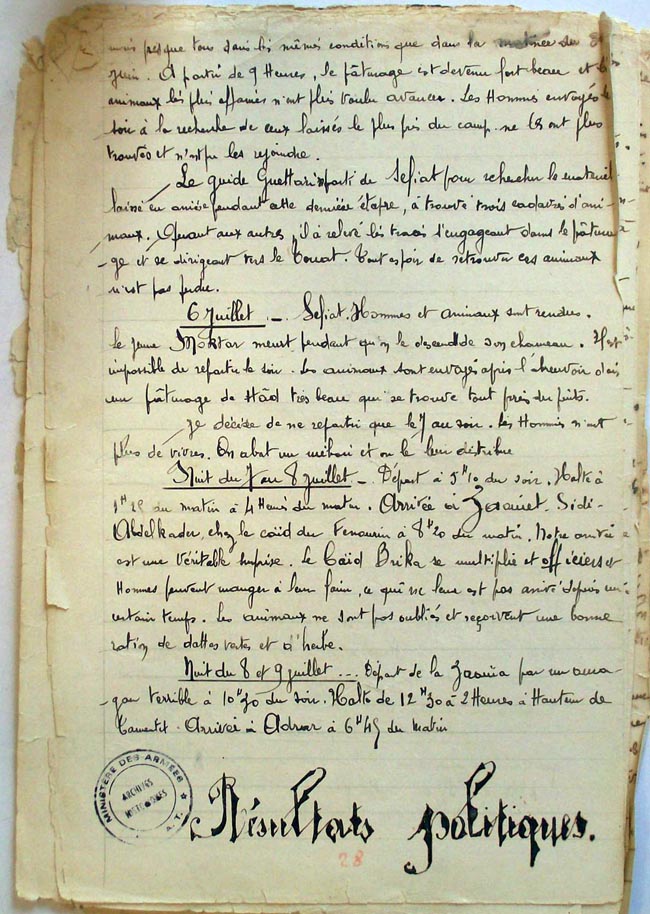 mais presque tous dans les mêmes conditions que dans la matinée du
Juin. A partir de 9 Heures, le pâturage est devenu fort beau et les
animaux les plus affamés n'ont plus voulu avancer. Les Hommes envoyés le
soir à la recherche de ceux laissés le plus près du camp ne les ont plus
trouvés et n'ont pu les rejoindre.
Le guide Guettari parti de Sefiat pour rechercher le matériel
laissé en arrière pendant cette dernière étape, à trouvé trois cadavres d'ani-
maux. Quant aux autres, il à relevé les traces s'engageant dans le pâtura-
-ge et se dirigeant vers le Touat. Tout espoir de retrouver ces animaux
n'est pas perdu.
6 Juillet _ Sefiat. Hommes et animaux sont rendus.
le jeune Moktar meurt pendant qu'on le descend de son chameau. Il est
impossible de repartir le soir. Les animaux sont envoyés après l'abreuvoir dans
un pâturage de Hâd très beau qui se trouve tout près du puits.
Je décide de ne repartir que le 7 au soir. Les Hommes n'ont
plus de vivres. On abat un méhari et on le leur distribue
Nuit du 7 au 8 Juillet _ Départ à 5H10 du soir. Halte à
du matin à 4 Heures du matin. Arrivée à Zaouiet. Sidi-
Abdelkader, chez le caïd du Fenourin à 8H20 du matin. Notre arrivée
est une véritable surprise. Le Caïd Brika se multiplie et officiers et
Hommes peuvent manger à leur faim, ce qui ne leur est pas arrivé depuis un
certain temps. Les animaux ne sont pas oubliés et reçoivent une bonne
ration de dattes vertes et d'herbe.
Nuit du 8 et 9 juillet _ Départ de la Zaouïa par un oura-
-gan terrible à 10H30 du soir. Halte de 12H30 à 2 Heures à Hauteur de
Tamentit. Arrivée à Adrar à 6H45 du matin
MINISTERE DES ARMEES
ARCHIVES
HISTORIQUES
A.T.
Résultats politiques.
28